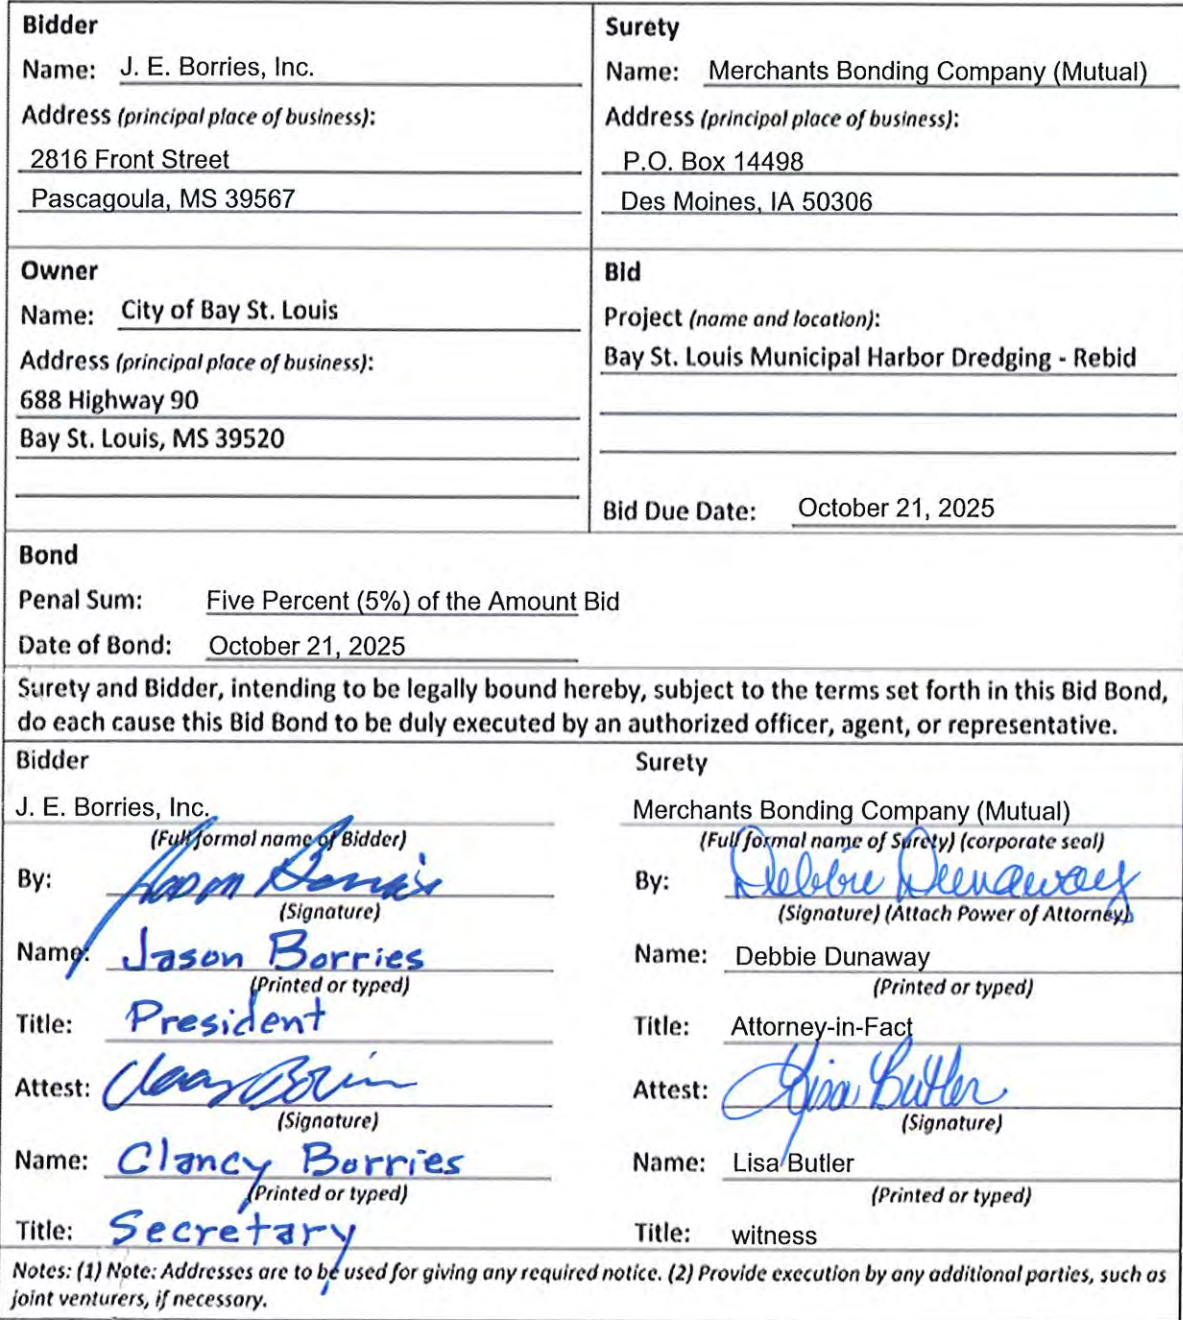 Bidder
Name: J. E. Borries, Inc.
Address (principal place of business):
2816 Front Street
Pascagoula, MS 39567
Surety
Name: Merchants Bonding Company (Mutual)
Address (principal place of business):
P.O. Box 14498
Des Moines, IA 50306
Owner
Name: City of Bay St. Louis
Address (principal place of business):
688 Highway 90
Bay St. Louis, MS 39520
Bid
Project (name and location):
Bay St. Louis Municipal Harbor Dredging - Rebid
Bid Due Date: October 21, 2025
Bond
Penal Sum: Five Percent (5%) of the Amount Bid
Date of Bond: October 21, 2025
Surety and Bidder, intending to be legally bound hereby, subject to the terms set forth in this Bid Bond,
do each cause this Bid Bond to be duly executed by an authorized officer, agent, or representative.
Bidder
J. E. Borries, Inc.
(Full formal name of Bidder)
By: Jason Borries
(Signature)
Name: Jason Borries
(Printed or typed)
Title: President
Attest: Clancy Borries
(Signature)
Name: Clancy Borries
(Printed or typed)
Title: Secretary
Surety
Merchants Bonding Company (Mutual)
(Full formal name of Surety) (corporate seal)
By: Debbie Dunaway
(Signature) (Attach Power of Attorney)
Name: Debbie Dunaway
(Printed or typed)
Title: Attorney-in-Fact
Attest: Lisa Butler
(Signature)
Name: Lisa Butler
(Printed or typed)
Title: witness
Notes: (1) Note: Addresses are to be used for giving any required notice. (2) Provide execution by any additional parties, such as
joint venturers, if necessary.